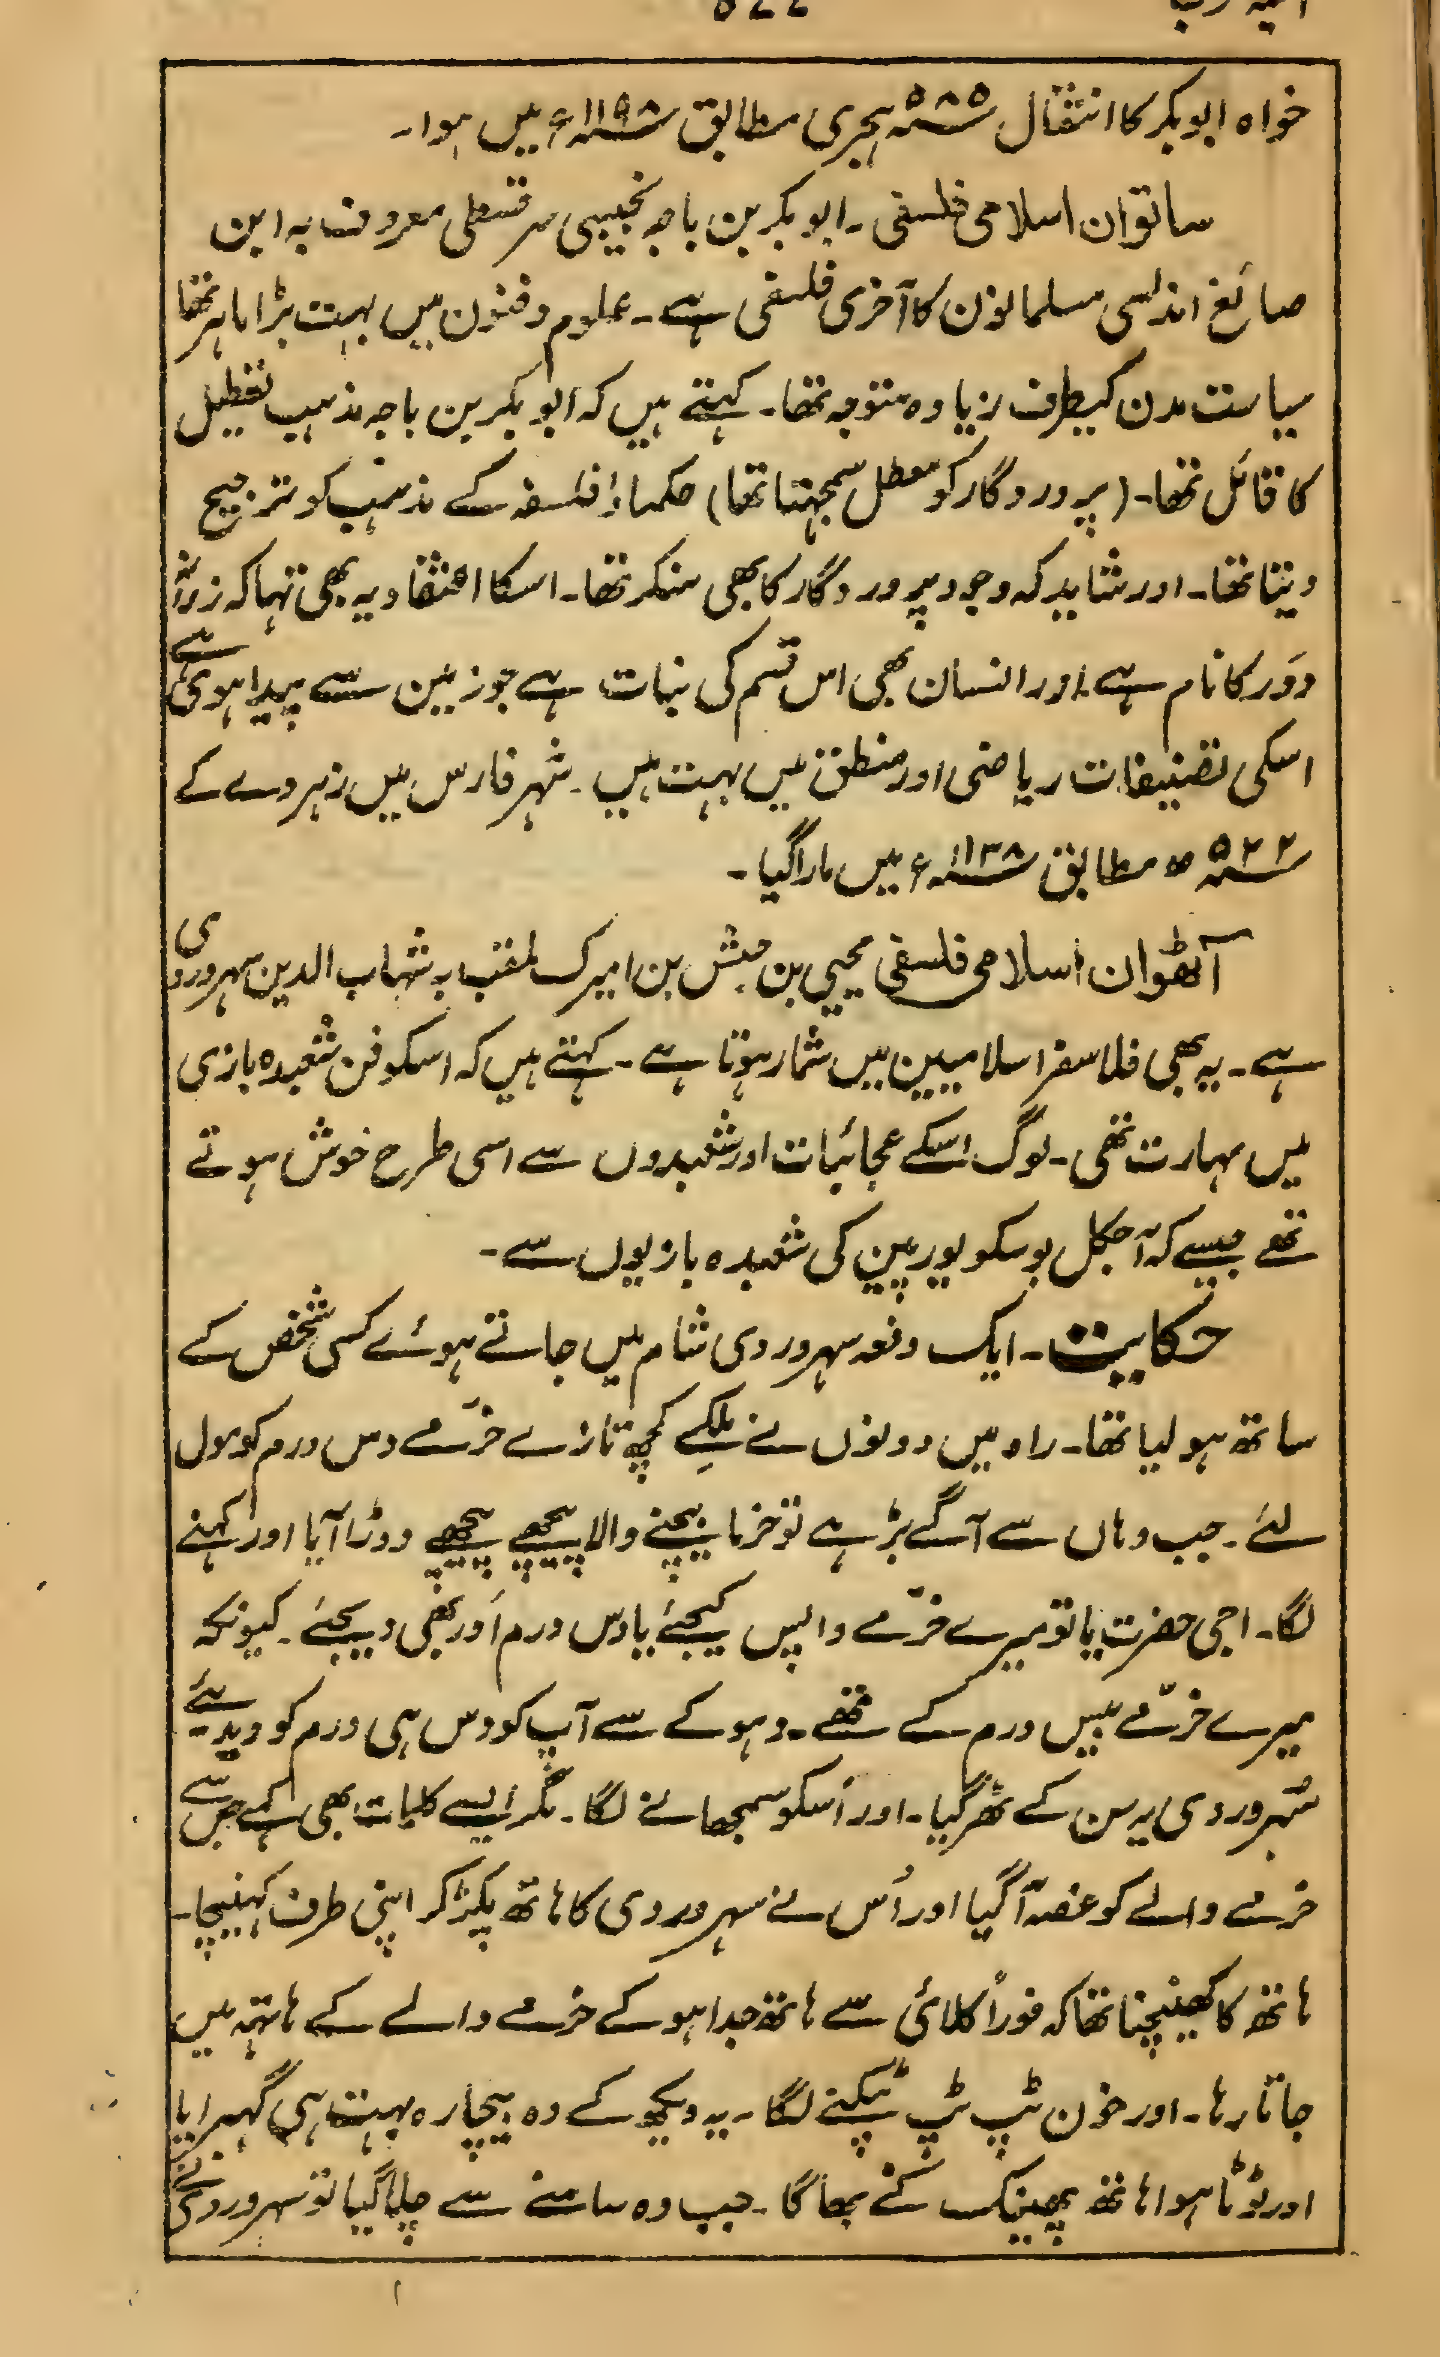 خواہ ابوبکر کا انتقال ۵۸۵ ہجری مطابق ۱۱۹۸ء میں ہوا۔
ساتوان اسلامی فلسفی۔ ابوبکر بن باجہ تجیبی سرقسطی معروف بہ ابن
صائغ اندلسی مسلمانون کا آخری فلسفی ہے۔ علوم و فنون میں بہت بڑا ماہر تھا
سیاست مدن کیطرف زیادہ متوجہ تھا۔ کہتے ہیں کہ ابوبکر بن باجہ مذہب تعطیل
کا قائل تھا۔ (پروردگار کو معطل سمجہتا تھا) حکماء فلسفہ کے مذہب کو ترجیح
دیتا تھا۔ اور شاید کہ وجود پروردگار کا بھی منکر تھا۔ اسکا اعتقاد یہ بھی تہا کہ زمانہ
دَور کا نام ہے اور انسان بھی اس قسم کی نبات ہے جو زمین سے پیدا ہوئی ہے
اسکی تصنیفات ریاضی اور منطق میں بہت ہیں۔ شہر فارس میں زہر دے کے
۵۲۲ھ مطابق ۱۱۳۸ء میں مارا گیا۔
آٹھوان اسلامی فلسفی یحیی بن حبش بن امیرک لمقب بہ شہاب الدین سہروردی
ہے۔ یہ بھی فلاسفر اسلامیین میں شمار ہوتا ہے۔ کہتے ہیں کہ اسکو فن شعبدہ بازی
میں مہارت تھی۔ لوگ اسکے عجائبات اور شعبدوں سے اسی طرح خوش ہوتے
تھے جیسے کہ آجکل بوسکو یورپین کی شعبدہ بازیوں سے۔
حکایت۔ ایک دفعہ سہروردی شام میں جاتے ہوئے کسی شخص کے
ساتھ ہو لیا تھا۔ راہ میں دونوں نے ملکے کچھ تازے خرمے دس درم کو مول
لئے۔ جب وہاں سے آگے بڑہے تو خرما بیچنے والا پیچھے پیچھے دوڑا آیا اور کہنے
لگا۔ اجی حضرت یا تو میرے خرمے واپس کیجئے یا دس درم اَور بھی دیجئے۔ کیونکہ
میرے خرمے بیس درم کے تھے۔ دہوکے سے آپ کو دس ہی درم کو دیدیئے
سُہروردی یہ سن کے ٹھرگیا۔ اور اُسکو سمجھانے لگا۔ مگر ایسے کلمات بھی کہے جس سے
خرمے والے کو غصہ آگیا اور اُس نے سہروردی کا ہاتھ پکڑ کر اپنی طرف کہینچا۔
ہاتھ کا کھینچنا تھا کہ فوراً کلائی سے ہاتھ جدا ہو کے خرمے والے کے ہاتہہ میں
جاتا رہا۔ اور خون ٹپ ٹپ ٹپکنے لگا۔ یہ دیکھ کے وہ بیچارہ بہت ہی گہبرایا
اور ٹوٹا ہوا ہاتھ پھینک کے بھاگا۔ جب وہ سامنے سے چلا گیا تو سہروردی نے